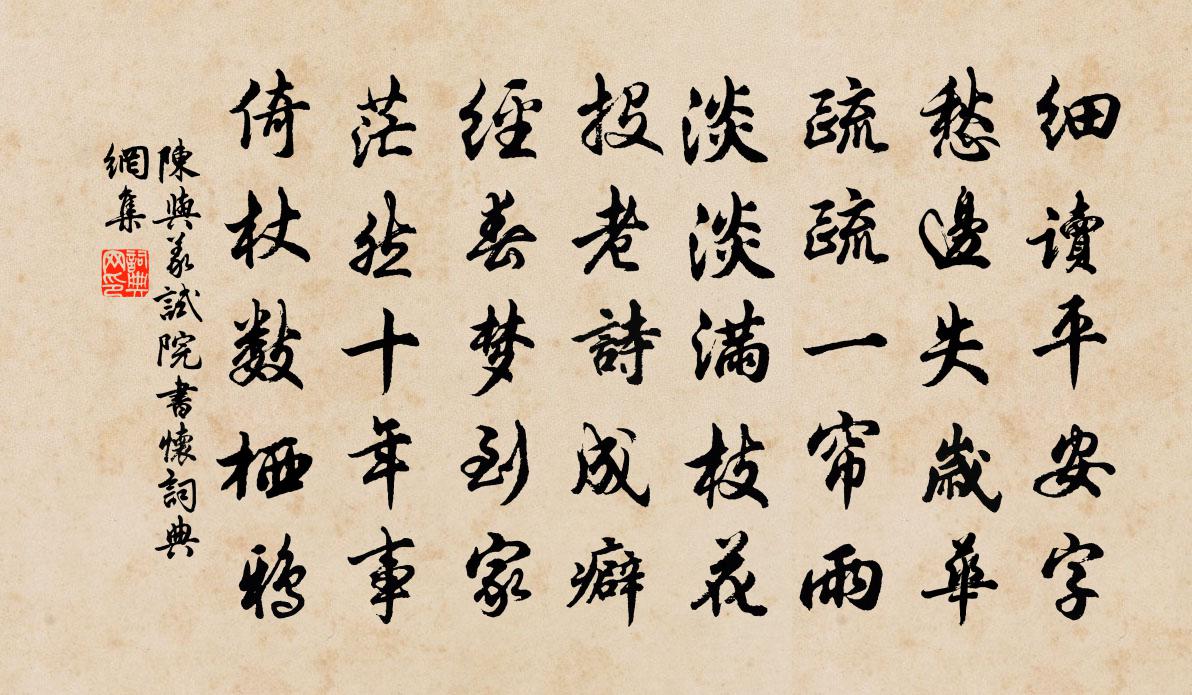 细讀平安字
愁邊失歲華
疏疏一帘雨
淡淡满枝花
投老詩成癖
經春梦到家
茫然十年事
倚杖數栖鴉
陳與義試院書懷詞典
網集
詞典
网印